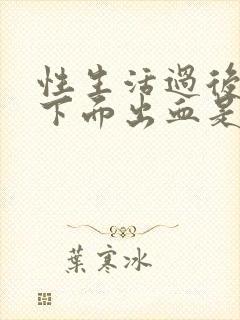 性生活過後
下面出血是
葉寒冰